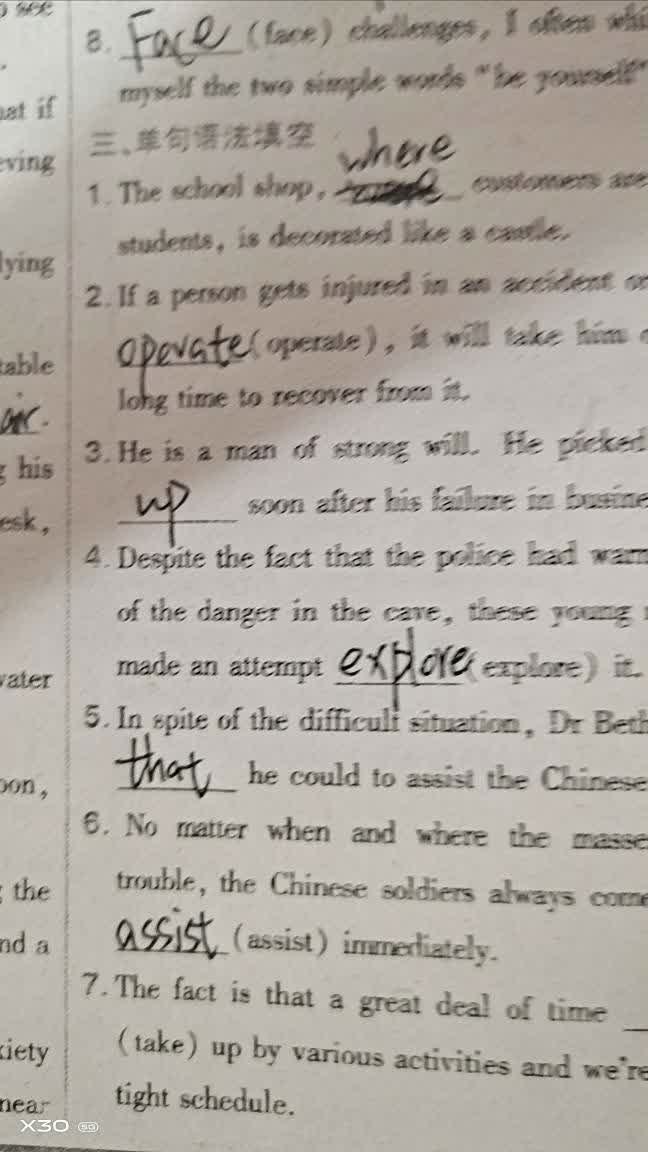 see
8. Face (face) challenges, I often whi
myself the two simple words "be yourself"
at if
三、单句语法填空
ving
where
1. The school shop, customers are
students, is decorated like a castle.
lying
2. If a person gets injured in an accident or
operate (operate), it will take him a
table
long time to recover from it.
air.
3. He is a man of strong will. He picked
his
up soon after his failure in busine
esk,
4. Despite the fact that the police had warn
of the danger in the cave, these young
made an attempt explore (explore) it.
vater
5. In spite of the difficult situation, Dr Beth
that he could to assist the Chinese
oon,
6. No matter when and where the masse
trouble, the Chinese soldiers always come
the
assist (assist) immediately.
nd a
7. The fact is that a great deal of time
(take) up by various activities and we're
xiety
tight schedule.
near
X30 5G